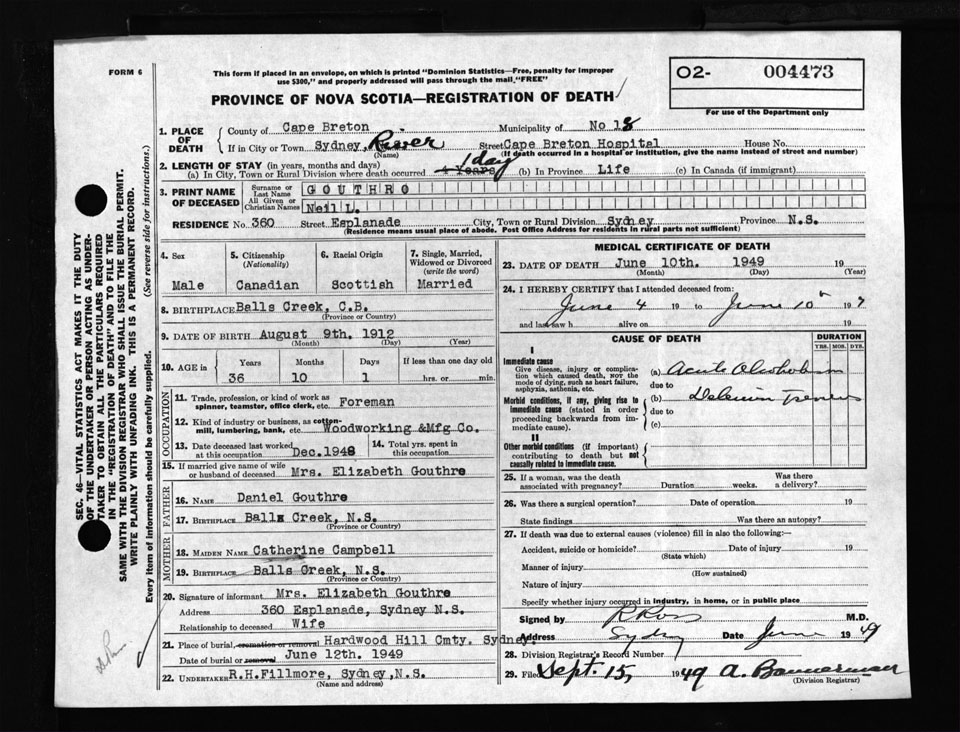 FORM 6
This form if placed in an envelope, on which is printed "Dominion Statistics—Free, penalty for improper
use $300," and properly addressed will pass through the mail, "FREE"
O2- 004473
For use of the Department only
PROVINCE OF NOVA SCOTIA—REGISTRATION OF DEATH
1. PLACE OF DEATH
County of Cape Breton Municipality of No 18
If in City or Town Sydney, River Street Cape Breton Hospital House No.
(Name) (If death occurred in a hospital or institution, give the name instead of street and number)
2. LENGTH OF STAY (in years, months and days)
(a) In City, Town or Rural Division where death occurred 4 Years 1 day (b) In Province Life (c) In Canada (if immigrant)
3. PRINT NAME OF DECEASED
Surname or Last Name GOUTHRO
All Given or Christian Names Neil L.
RESIDENCE No. 360 Street Esplanade City, Town or Rural Division Sydney Province N.S.
(Residence means usual place of abode. Post Office Address for residents in rural parts not sufficient)
4. Sex 5. Citizenship (Nationality) 6. Racial Origin 7. Single, Married, Widowed or Divorced (write the word)
Male Canadian Scottish Married
8. BIRTHPLACE Balls Creek, C.B.
(Province or Country)
9. DATE OF BIRTH August 9th. 1912
(Month) (Day) (Year)
10. AGE in Years Months Days If less than one day old
36 10 1 hrs. or min.
OCCUPATION
11. Trade, profession, or kind of work as
spinner, teamster, office clerk, etc. Foreman
12. Kind of industry or business, as cotton-
mill, lumbering, bank, etc. Woodworking &Mfg Co.
13. Date deceased last worked at this occupation Dec.1948 14. Total yrs. spent in this occupation
15. If married give name of wife
or husband of deceased Mrs. Elizabeth Gouthre
FATHER
16. NAME Daniel Gouthre
17. BIRTHPLACE Balls Creek, N.S.
(Province or Country)
MOTHER
18. MAIDEN NAME Catherine Campbell
19. BIRTHPLACE Balls Creek, N.S.
(Province or Country)
20. Signature of informant Mrs. Elizabeth Gouthre
Address 360 Esplanade, Sydney N.S.
Relationship to deceased Wife
21. Place of burial, cremation or removal Hardwood Hill Cmty. Sydney
Date of burial or removal June 12th. 1949
22. UNDERTAKER R.H.Fillmore, Sydney,N.S.
(Name and address)
MEDICAL CERTIFICATE OF DEATH
23. DATE OF DEATH June 10th. 1949 19
(Month) (Day) (Year)
24. I HEREBY CERTIFY that I attended deceased from:
June 4 19 to June 10th 19
and last saw h alive on 19
CAUSE OF DEATH DURATION
YRS. MOS. DYS.
I
Immediate cause
Give disease, injury or complica-
tion which caused death, NOT the
mode of dying, such as heart failure,
asphyxia, asthenia, etc.
(a) Acute Alcoholism
due to
Morbid conditions, if any, giving rise to
immediate cause (stated in order
proceeding backwards from im-
mediate cause).
(b) Delerium Tremens
due to
(c)
II
Other morbid conditions (if important)
contributing to death but not
causally related to immediate cause.
25. If a woman, was the death
associated with pregnancy? Duration weeks. Was there a delivery?
26. Was there a surgical operation? Date of operation 19
State findings Was there an autopsy?
27. If death was due to external causes (violence) fill in also the following:—
Accident, suicide or homicide? Date of injury 19
(State which)
Manner of injury
(How sustained)
Nature of injury
Specify whether injury occurred in industry, in home, or in public place
Signed by R Ross M.D.
Address Sydney Date June 1949
28. Division Registrar's Record Number
29. Filed Sept. 15, 1949 A. Bannerman
(Division Registrar)
SEC. 46—VITAL STATISTICS ACT MAKES IT THE DUTY
OF THE UNDERTAKER OR PERSON ACTING AS UNDER-
TAKER TO OBTAIN ALL THE PARTICULARS REQUIRED
IN THE "REGISTRATION OF DEATH" AND TO FILE THE
SAME WITH THE DIVISION REGISTRAR WHO SHALL ISSUE THE BURIAL PERMIT.
WRITE PLAINLY WITH UNFADING INK. THIS IS A PERMANENT RECORD.
Every item of information should be carefully supplied. (See reverse side for instructions.)